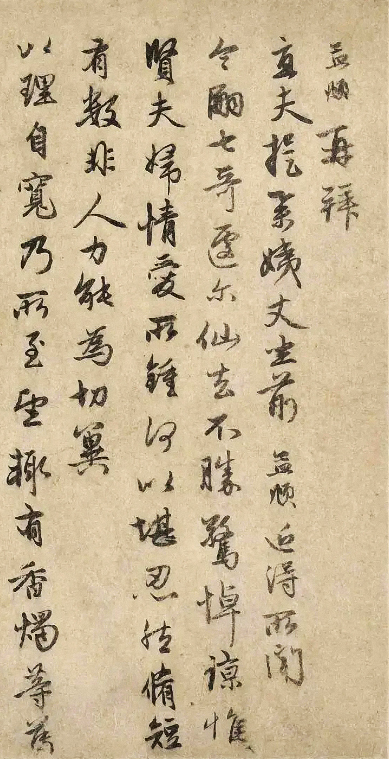 孟頫再拜
直夫提舉姨丈坐前 孟頫近得所聞
令嗣七哥遽尔仙去不勝驚悼諒惟
賢夫婦情愛所鍾何以堪忍然脩短
有數非人力能為切冀
以理自寬乃所至望輒有香燭等